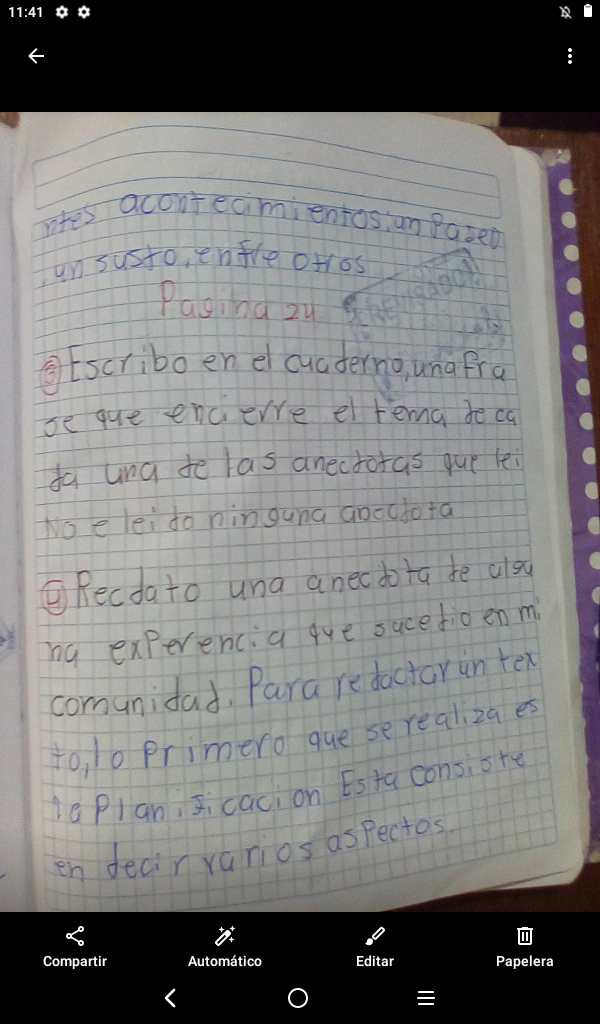 11:41
ntes acontecimientos: un Paseo
, un susto, entre otros
Pagina 24
③ Escribo en el cuaderno, una fra
se que encierre el tema de ca
da una de las anecdotas que lei
No e leido ninguna anecdota
④ Recdato una anecdota de algu
na experencia que sucedio en mi
comunidad. Para redactar un tex
to, lo Primero que se realiza es
la Planificacion Esta consiste
en decir varios aspectos.
Compartir
Automático
Editar
Papelera